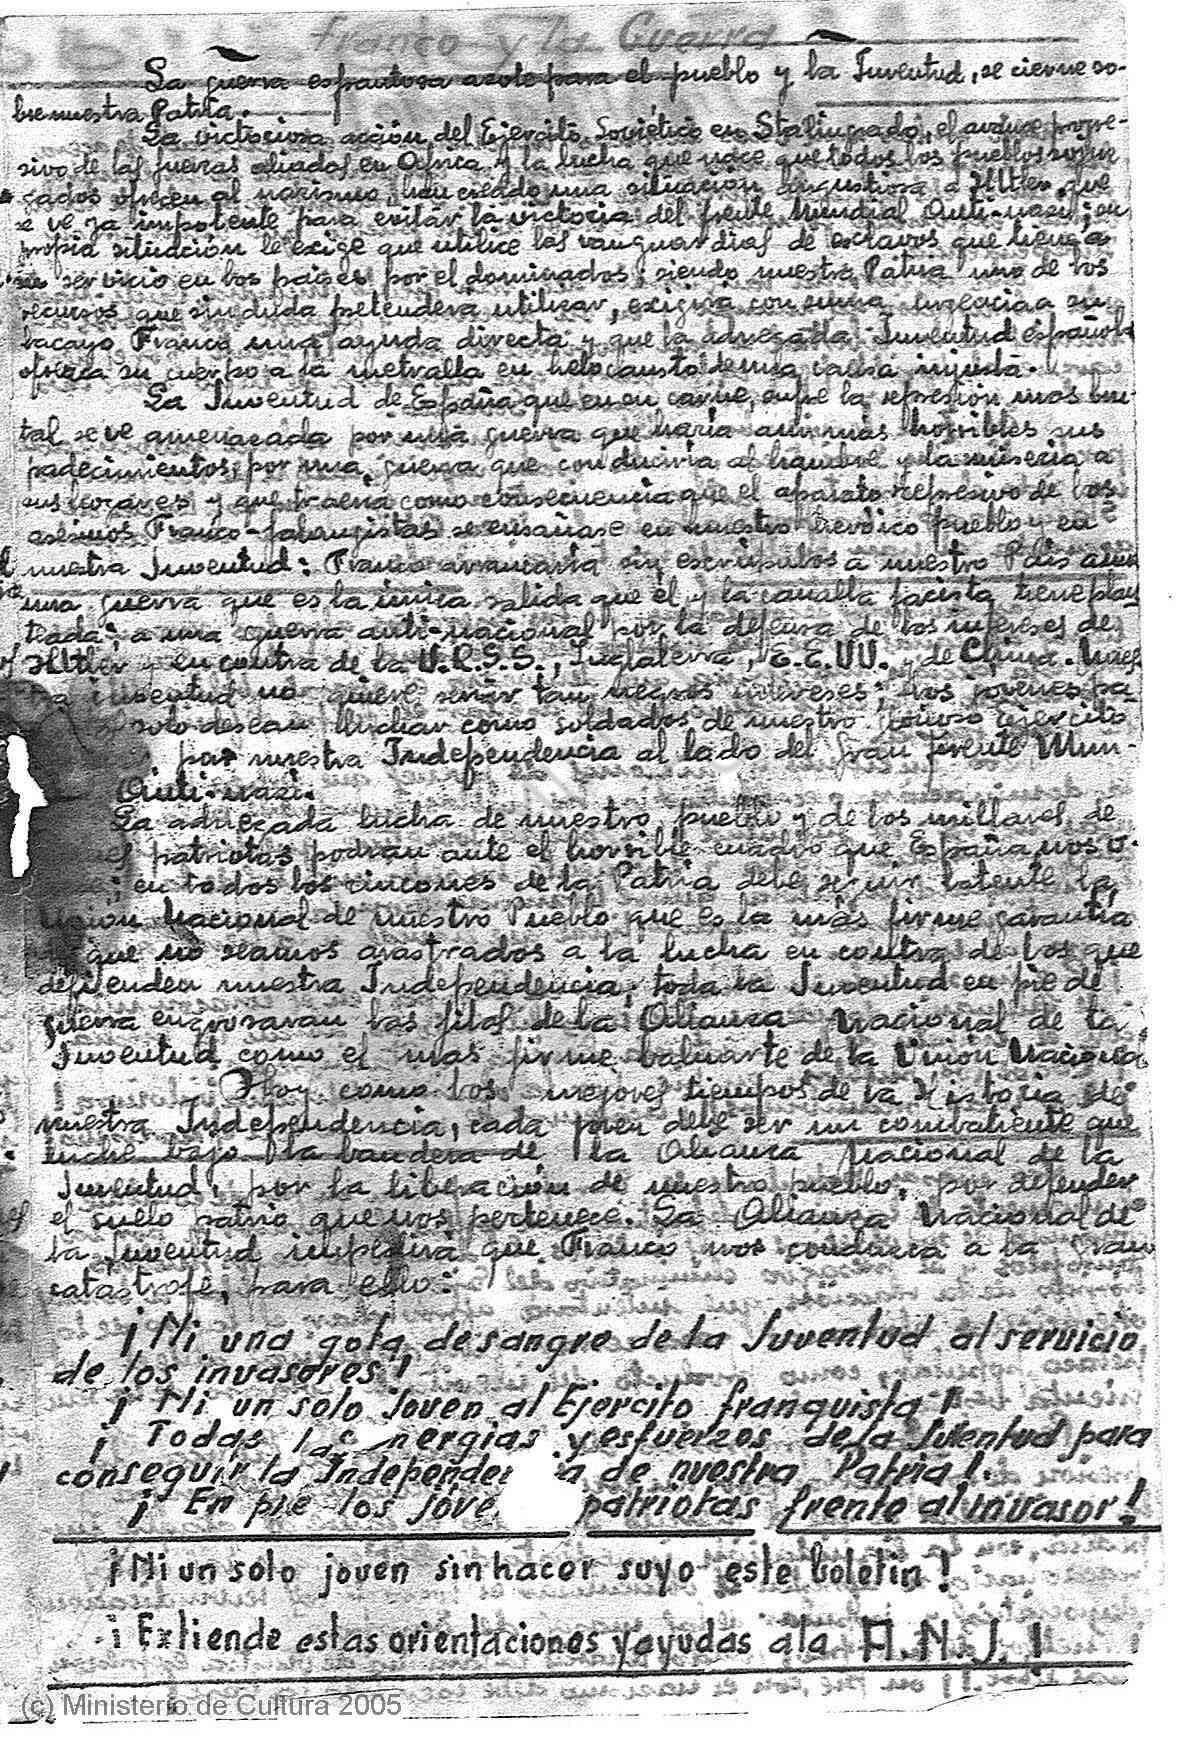 Franco y la Guerra
La guerra espantosa azote para el pueblo y la Juventud, se cierne so-
bre nuestra Patria.
La victoriosa acción del Ejercito Soviético en Stalingrado, el avance progre-
sivo de las fuerzas aliadas en Africa y la lucha que nace que todos los pueblos sojuz
gados ofrecen al nazismo, han creado una situación angustiosa a Hitler, que
se ve ya impotente para evitar la victoria del frente Mundial Anti-nazi; su
propia situación le exige que utilice las vanguardias de esclavos que tiene a
su servicio en los paises por el dominados; siendo nuestra Patria uno de los
recursos que sin duda pretenderá utilizar, exigirá con suma urgencia a su
lacayo Franco una ayuda directa y que la abnegada Juventud española
ofrezca su cuerpo a la metralla en holocausto de una causa injusta.
La Juventud de España que en su carne, sufre la represión mas bru-
tal se ve amenazada por una guerra que haria aun mas horribles sus
padecimientos; por una guerra que conduciria al hambre y la miseria a
sus hogares y que traeria como consecuencia que el aparato represivo de los
asesinos Franco-falangistas se ensañase en nuestro heróico pueblo y en
nuestra Juventud: Franco arrancaria sin escrúpulos a nuestro Pais a
una guerra que es la única salida que él y la canalla facista tiene plan
teada; a una guerra anti-nacional por la defensa de los intereses de
Hitler y en contra de la U.R.S.S., Inglaterra, E.E.U.U. y de China. Nues
tra juventud no quiere servir tan negros intereses; los jovenes pa-
solo desean luchar como soldados de nuestro glorioso ejercito
por nuestra Independencia al lado del gran frente Mun-
Anti-nazi.
La abnegada lucha de nuestro pueblo y de los millares de
patriotas podran ante el horrible cuadro que España nos o-
; en todos los rincones de la Patria debe seguir latente la
Unión Nacional de nuestro Pueblo que es la más firme garantia
que no seamos arastrados a la lucha en contra de los que
defienden nuestra Independencia, toda la Juventud en pie de
guerra engrosaran las filas de la Alianza Nacional de la
Juventud como el mas firme baluarte de la Unión Nacional
Hoy como los mejores tiempos de la Historia de
nuestra Independencia, cada joven debe ser un combatiente que
luche bajo la bandera de la Alianza Nacional de la
Juventud, por la liberación de nuestro pueblo, por defender
el suelo patrio que nos pertenece. La Alianza Nacional de
la Juventud impedirá que Franco nos conduzca a la gran
catastrofe, para ello:
¡Ni una gota de sangre de la Juventud al servicio
de los invasores!
¡Ni un solo joven al Ejercito franquista!
¡Todas las energias y esfuerzos de la Juventud para
conseguir la Independencia de nuestra Patria!.
¡En pie los jóve patriotas frente al invasor!
¡Ni un solo joven sin hacer suyo este boletin!
¡Extiende estas orientaciones y ayudas a la A.N.J.!
(c) Ministerio de Cultura 2005